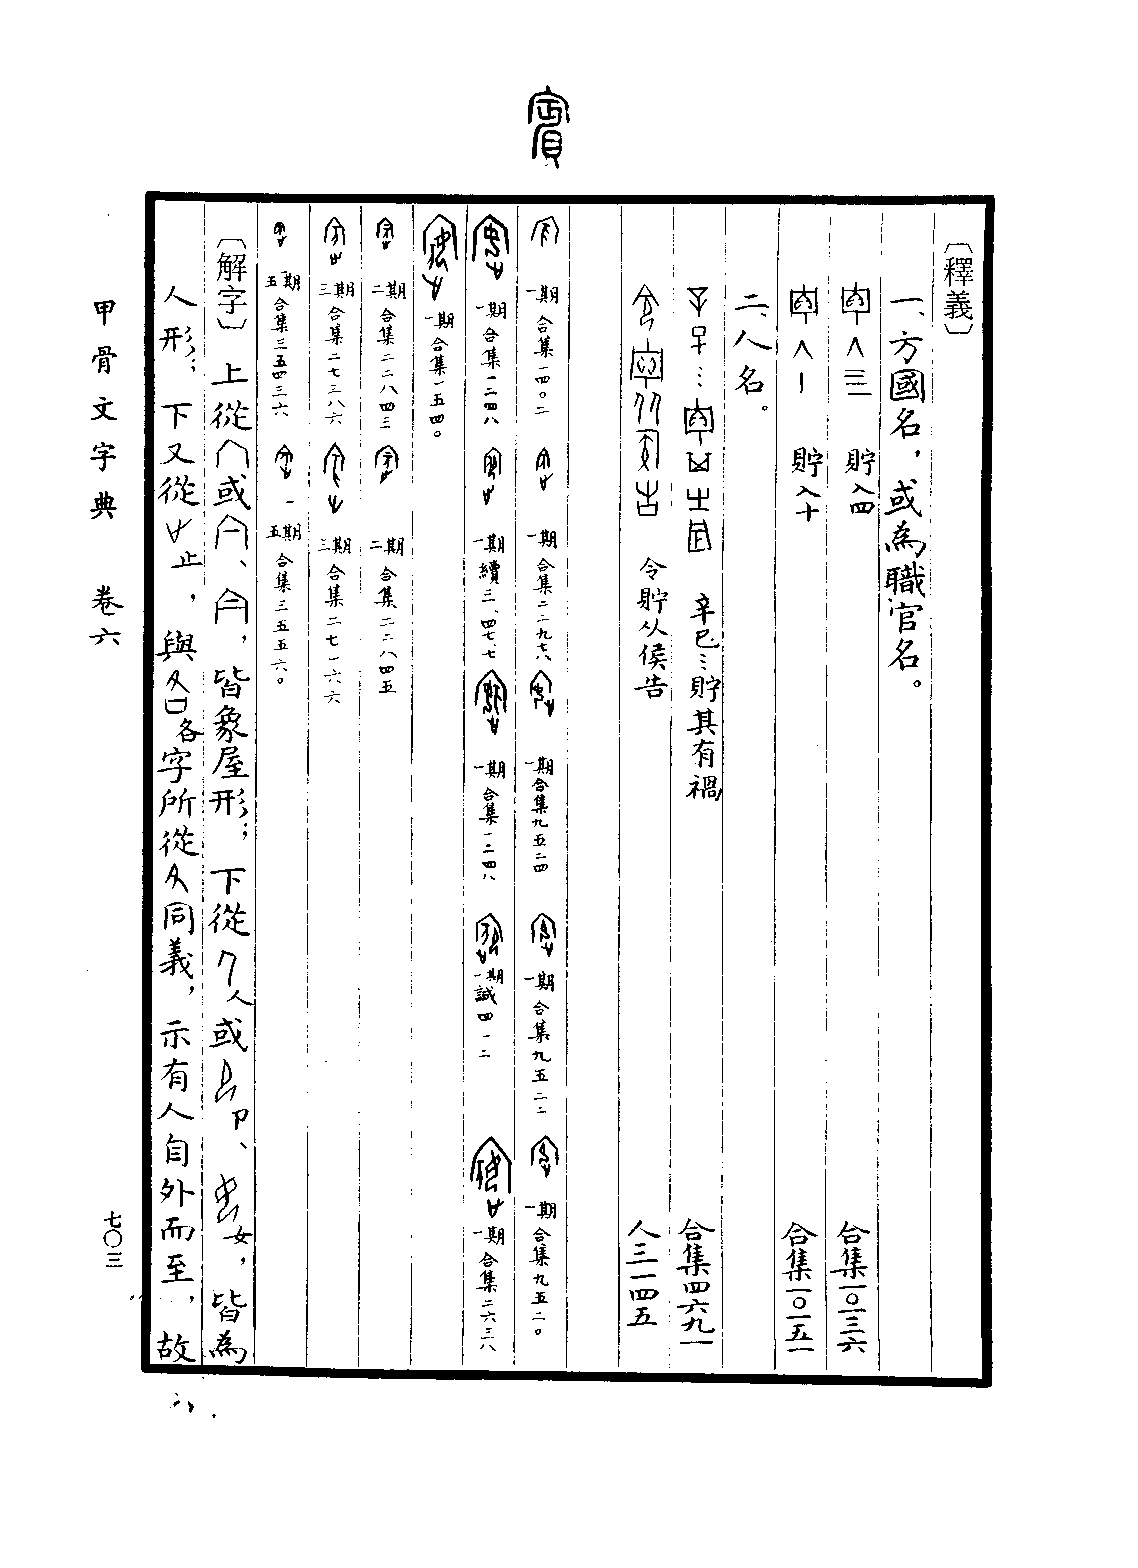 賓
〔釋義〕
一、方國名，或為職官名。
貯入四 合集一〇一三六
貯入十 合集一〇一五一
二、人名。
辛巳…貯其有禍 合集四六九一
令貯从侯告 人三一四五
一期 合集一四〇二 一期 合集二二九七八 一期 合集九五二四 一期 合集九五二二 一期 合集九五二〇
一期 合集一二四八 一期 續三、四七、七 一期 合集一二四八 一期 誠四一二 一期 合集二六三八
一期 合集一五四〇
二期 合集二二八四三 二期 合集二二八四五
三期 合集二七三八六 三期 合集二七一六六
五期 合集三五四三六 五期 合集三五五六〇
〔解字〕上從或、，皆象屋形；下從人或卩、女，皆為
人形；下又從止，與各字所從同義，示有人自外而至，故
甲骨文字典 卷六
七〇三